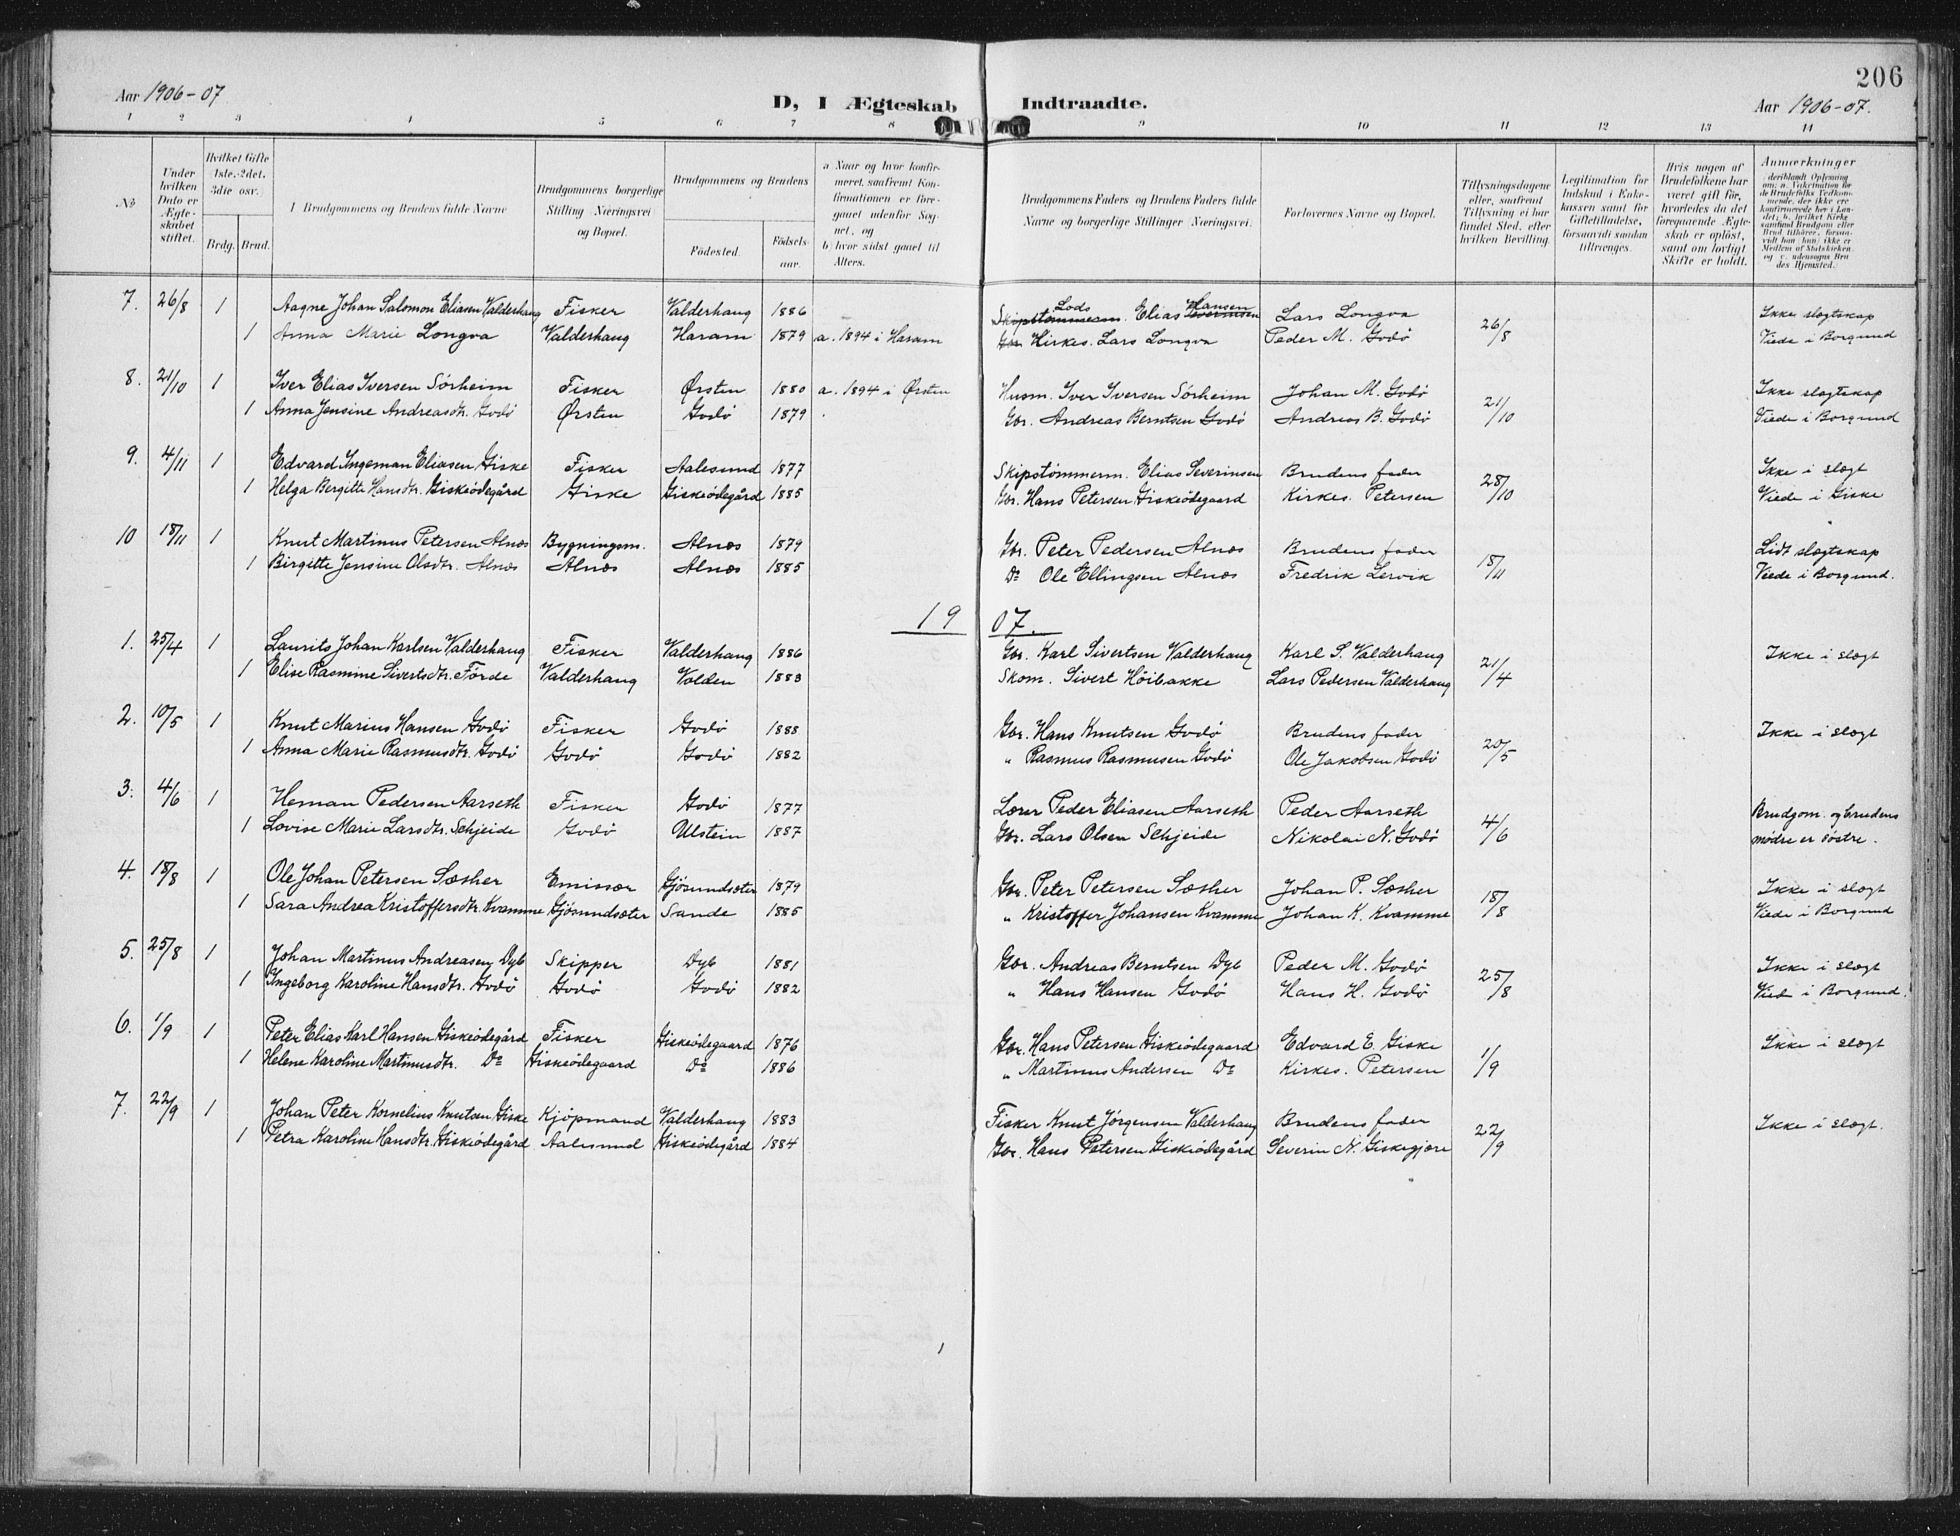 206
Aar 1906-07
D, I Ægteskab Indtraadte.
Aar 1906-07.
1 2 3 4 5 6 7 8 9 10 11 12 13 14
No
Under hvilken Dato er Ægteskabet stiftet.
Hvilket Gifte 1ste, 2det, 3die osv.
Brdg. Brud.
Brudgommens og Brudens fulde Navne
Brudgommens borgerlige Stilling Næringsvei og Bopæl.
Brudgommens og Brudens
Fødested. Fødselsaar.
a Naar og hvor konfirmeret, saafremt Konfirmationen er foregaaet udenfor Sognet, og
b hvor sidst gaaet til Alters.
Brudgommens Faders og Brudens Faders fulde Navne og borgerlige Stillinger Næringsvei.
Forlovernes Navne og Bopæl.
Tillysningsdagene eller, saafremt Tillysning ei har fundet Sted, efter hvilken Bevilling.
Legitimation for Indskud i Enkekassen samt for Giftetilladelse, forsaavidt saadan tiltrænges.
Hvis nogen af Brudefolkene har været gift før, hvorledes da det foregaaende Ægteskab er opløst, samt om lovligt Skifte er holdt.
Anmærkninger
deriblandt Oplysning om: a. Vakcination for de Brudefolks Vedkommende, der ikke ere konfirmerede her i Landet; b. hvilket Kirkesamfund Brudgom eller Brud tilhører, forsaavidt han (hun) ikke er Medlem af Statskirken, og c. udensogns Brudes Hjemsted.
7. 26/8 1 Aagne Johan Salomon Eliasen Valderhaug Fisker Valderhaug 1886 Skipstømmerm. Lods Elias Severinsen Hansen Lars Longva Ikke slægtskap
1 Anna Marie Longva Valderhaug Haram 1879 a. 1894 i Haram Gbr. Kirkes. Lars Longva Peder M. Godø 26/8 Viede i Borgund
8. 21/10 1 Iver Elias Iversen Sörheim Fisker Ørsten 1880 a. 1894 i Ørsten Husm. Iver Iversen Sörheim Johan M. Godø Ikke slægtskap
1 Anna Jensine Andreasdtr. Godø Ørsten Godø 1879 Gbr. Andreas Berntsen Godø Andreas B. Godø 21/10 Viede i Borgund
9. 4/11 1 Edvard Ingeman Eliasen Giske Fisker Aalesund 1877 Skipstømmerm. Elias Severinsen Brudens fader Ikke i slægt
1 Helga Bergitte Hansdtr. Giskeödegård Giske Giskeödegård 1885 Gbr. Hans Petersen Giskeödegaard Kirkes. Petersen 28/10 Viede i Giske
10 18/11 1 Knut Martinus Petersen Alnæs Bygningsm. Alnæs 1879 Gbr. Peter Pedersen Alnæs Brudens fader Lidt slægtskap
1 Birgitte Jensine Olsdtr. Alnæs Alnæs Alnæs 1885 Do Ole Ellingsen Alnæs Fredrik Lervik 18/11 Viede i Borgund.
1907.
1. 25/4 1 Laurits Johan Karlsen Valderhaug Fisker Valderhaug 1886 Gbr. Karl Sivertsen Valderhaug Karl S. Valderhaug Ikke i slægt
1 Elise Rasmine Sivertsdtr. Förde Valderhaug Volden 1883 Skom. Sivert Höibakke Lars Pedersen Valderhaug 21/4
2. 10/5 1 Knut Marius Hansen Godø Fisker Godø 1888 Gbr. Hans Knutsen Godø Brudens fader Ikke i slægt
1 Anna Marie Rasmusdtr. Godø Godø Godø 1882 " Rasmus Rasmusen Godø Ole Jakobsen Godø 20/5
3. 4/6 1 Heman Pedersen Aarseth Fisker Godø 1877 Lærer Peder Eliasen Aarseth Peder Aarseth Brudgom. og brudens
1 Lovise Marie Larsdtr. Schjeide Godø Ulstein 1887 Gbr. Lars Olsen Schjeide Nikolai N. Godø 4/6 mødre er søstre.
4. 18/8 1 Ole Johan Petersen Sæther Emissær Gjösundsæter 1879 Gbr. Peter Petersen Sæther Johan P. Sæther Ikke i slægt
1 Sara Andrea Kristoffersdtr. Kvamme Gjösundsæter Sande 1885 " Kristoffer Johansen Kvamme Johan K. Kvamme 18/8 Viede i Borgund
5. 25/8 1 Johan Martinus Andreasen Dyb Skipper Dyb 1881 Gbr. Andreas Berntsen Dyb Peder M. Godø Ikke i slægt
1 Ingeborg Karoline Hansdtr. Godø Godø Godø 1882 " Hans Hansen Godø Hans H. Godø 25/8 Vied i Borgund.
6. 1/9 1 Peter Elias Karl Hansen Giskeödegård Fisker Giskeödegaard 1876 Gbr. Hans Petersen Giskeödegaard Edvard E. Giske Ikke i slægt
1 Helene Karoline Martinusdtr. Do Giskeödegaard Do 1886 " Martinus Andersen Do Kirkes. Petersen 1/9
7. 22/9 1 Johan Peter Kornelius Knutsen Giske Kjöpmand Valderhaug 1883 Fisker Knut Jörgensen Valderhaug Brudens fader Ikke i slægt.
1 Petra Karoline Hansdtr. Giskeödegård Aalesund Giskeödegård 1884 Gbr. Hans Petersen Giskeödegård Severin N. Giskegjære 22/9